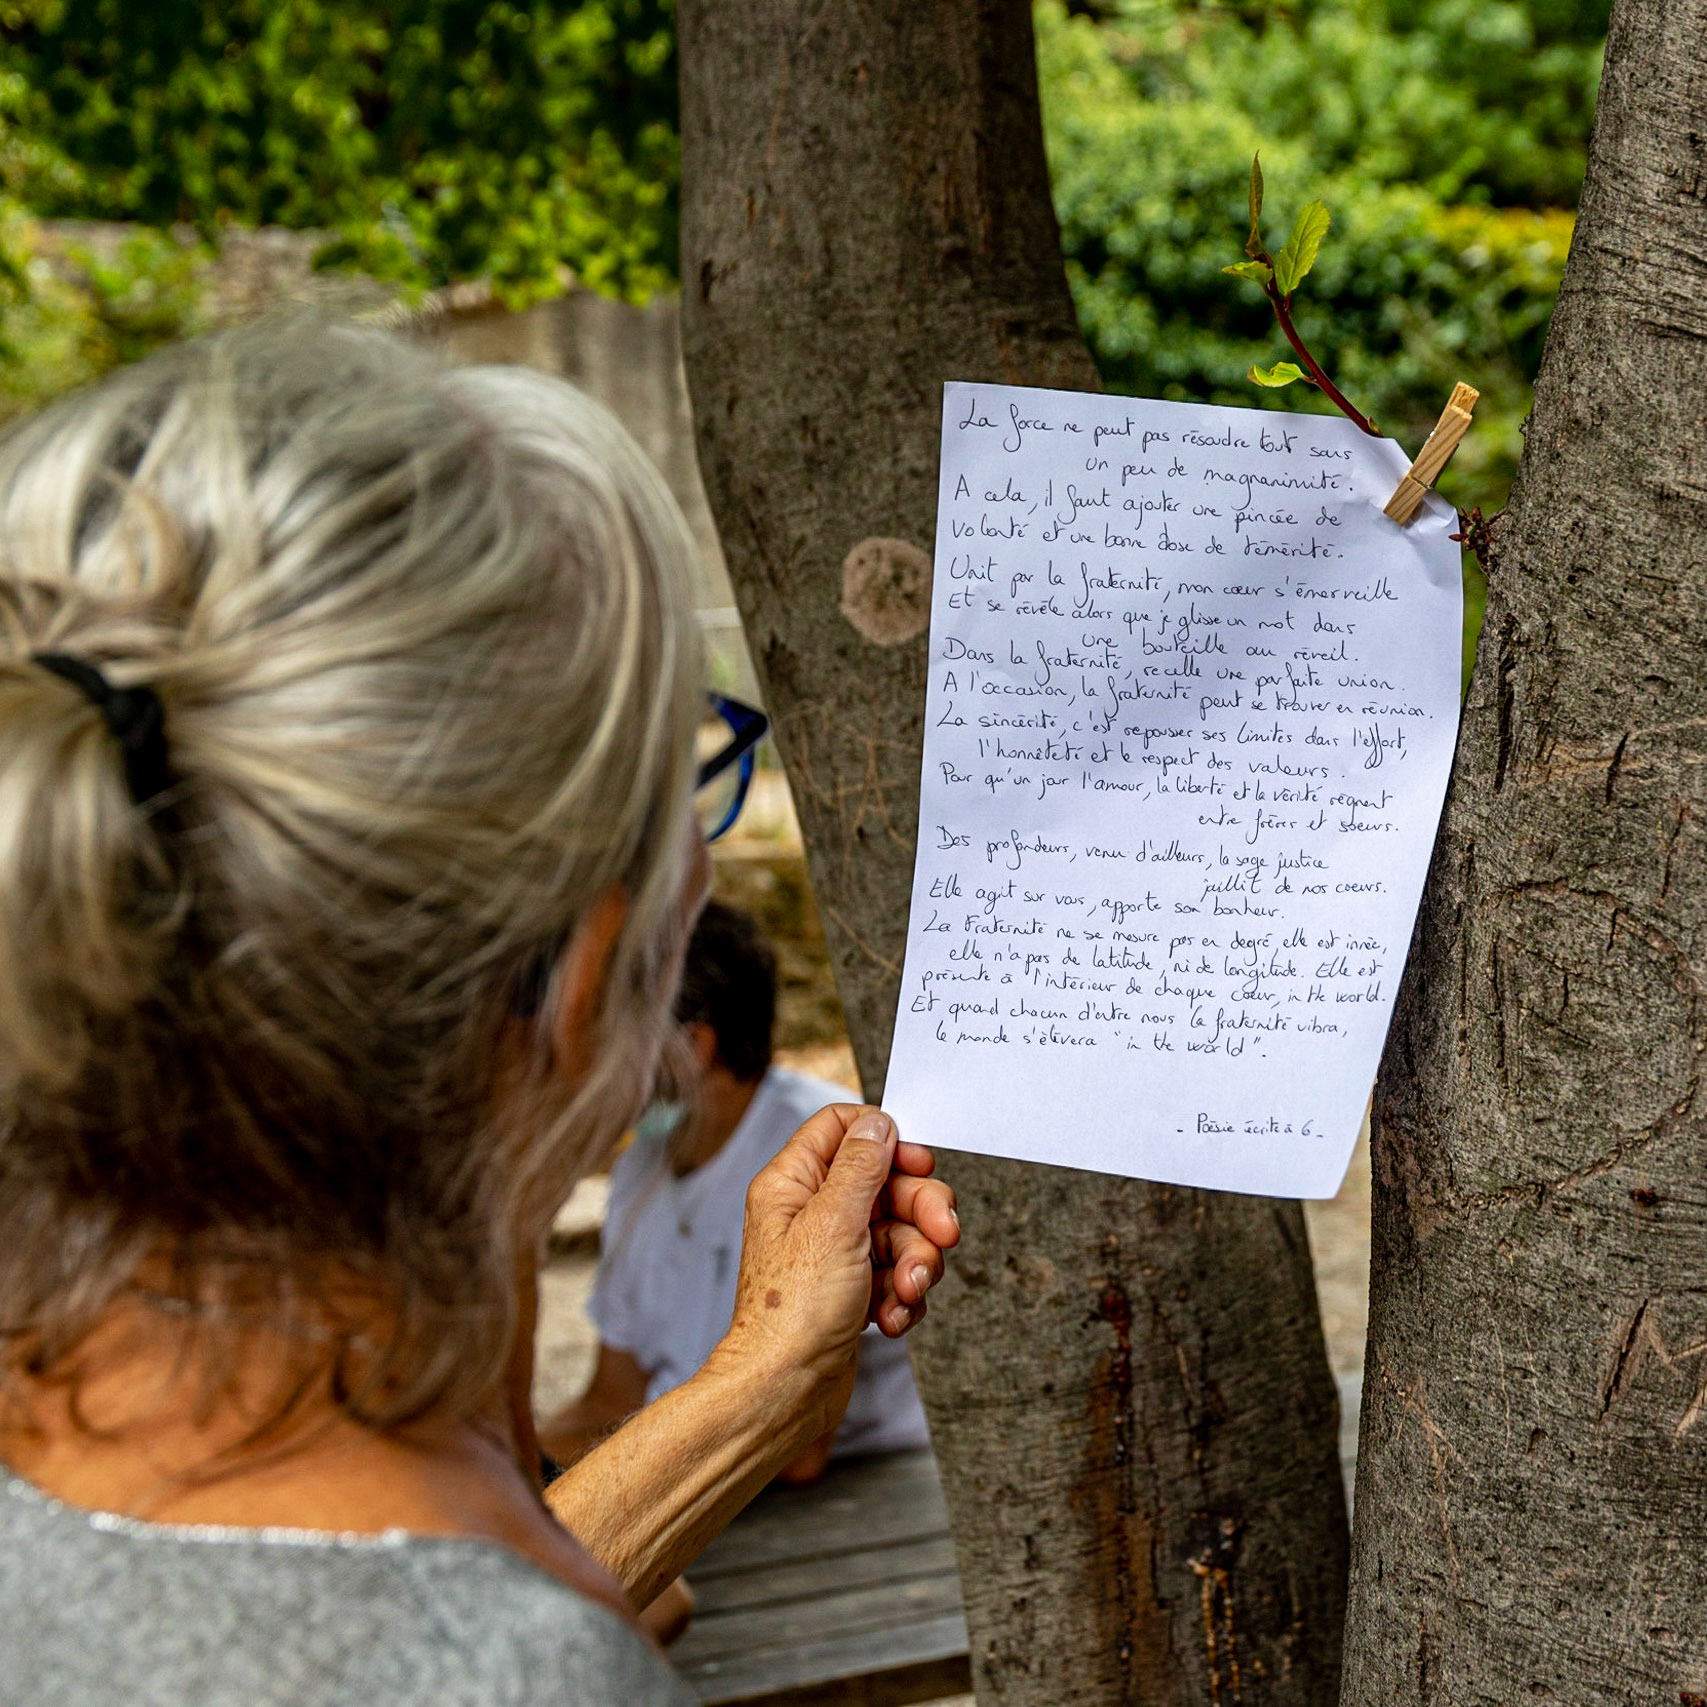 La force ne peut pas résoudre tout sans
un peu de magnanimité.
A cela, il faut ajouter une pincée de
volonté et une bonne dose de témérité.
Unit par la fraternité, mon cœur s'émerveille
Et se révèle alors que je glisse un mot dans
une bouteille au réveil.
Dans la fraternité, recelle une parfaite union.
A l'occasion, la fraternité peut se trouver en réunion.
La sincérité, c'est repousser ses limites dans l'effort,
l'honnêteté et le respect des valeurs.
Pour qu'un jour l'amour, la liberté et la vérité règnent
entre frères et soeurs.
Des profondeurs, venu d'ailleurs, la sage justice
jaillit de nos coeurs.
Elle agit sur vous, apporte son bonheur.
La Fraternité ne se mesure pas en degré, elle est innée,
elle n'a pas de latitude, ni de longitude. Elle est
présente à l'intérieur de chaque coeur, in the world.
Et quand chacun d'entre nous la fraternité vibra,
le monde s'élèvera "in the world".
- Poésie écrite à 6 -